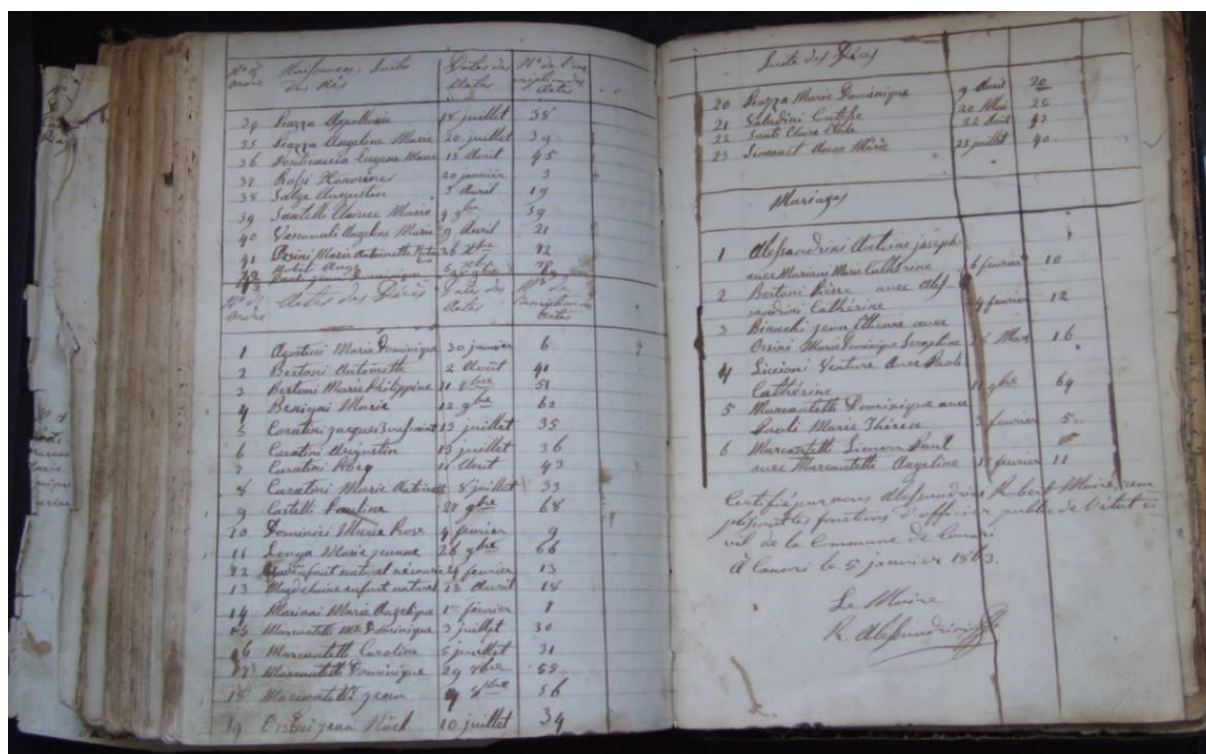 N° d' Naissances, Suite Dates des N° de l'ins
Ordre des Nés Actes cription des
actes
34 Piazza Appollonie 18 juillet 38
35 Piazza Angeline Marie 20 juillet 39
36 Eugene Marie 13 Avril 45
37 Rossi Honorine 20 janvier 3
38 Salge Augustin 3 Avril 19
39 Santelli Marie 9bre 59
40 Angeline Marie 9 Avril 21
41 Orsini Marie Antoinette 26 Xbre 72
N° d' Actes des Décès Dates des N° de
Ordre Actes l'inscription des
actes
1 Agostini Marie Dominique 30 janvier 6
2 Bertoni Antoinette 2 Août 41
3 Bertoni Marie Philippine 11 8bre 51
4 Benigni Marie 12 9bre 62
5 Caratini jacques 13 juillet 35
6 Caratini Augustin 15 juillet 36
7 Caratini 11 Août 43
8 Caratini Marie Antoinette 8 juillet 33
9 Castelli Faustine 28 9bre 68
10 Dominici Marie Rose 4 fevrier 9
11 Marie jeanne 26 9bre 66
12 enfant naturel 24 fevrier 13
13 Magdelaine enfant naturel 13 Avril 18
14 Mariani Marie Angelique 1er fevrier 8
15 Marcantelli Me Dominique 3 juillet 30
16 Marcantelli Caroline 5 juillet 31
17 Marcantelli Dominique 29 7bre 52
18 Marcantelli jean 9 8bre 56
19 Orsini jean Noël 10 juillet 34
Suite des Décès
20 Piazza Marie Dominique 9 Avril 20
21 Saladini 20 Mai 25
22 Santi Claire 22 Août 43
23 Simonet Anne Marie 28 juillet 40
Mariages
1 Alessandrini Antoine joseph
avec Mariani Marie Cathérine 6 fevrier 10
2 Bertoni Pierre avec Ales
sandrini Cathérine 24 fevrier 12
3 Bianchi jean Ettienne avec
Orsini Marie Dominique Seraphine 26 Mars 16
4 Liccioni Venture Avec Paoli
Cathérine 11 9bre 64
5 Marcantelli Dominique avec
Paoli Marie Thérèse 3 fevrier 5
6 Marcantelli Simon Paul
avec Marcantelli Angeline 17 fevrier 11
Certifié par nous Alessandrini Robert Maire, rem
plissant les fonctions d'officier public de l'état ci
vil de la Commune de Canari
A Canari le 5 janvier 1863.
Le Maire
R. Alessandrini